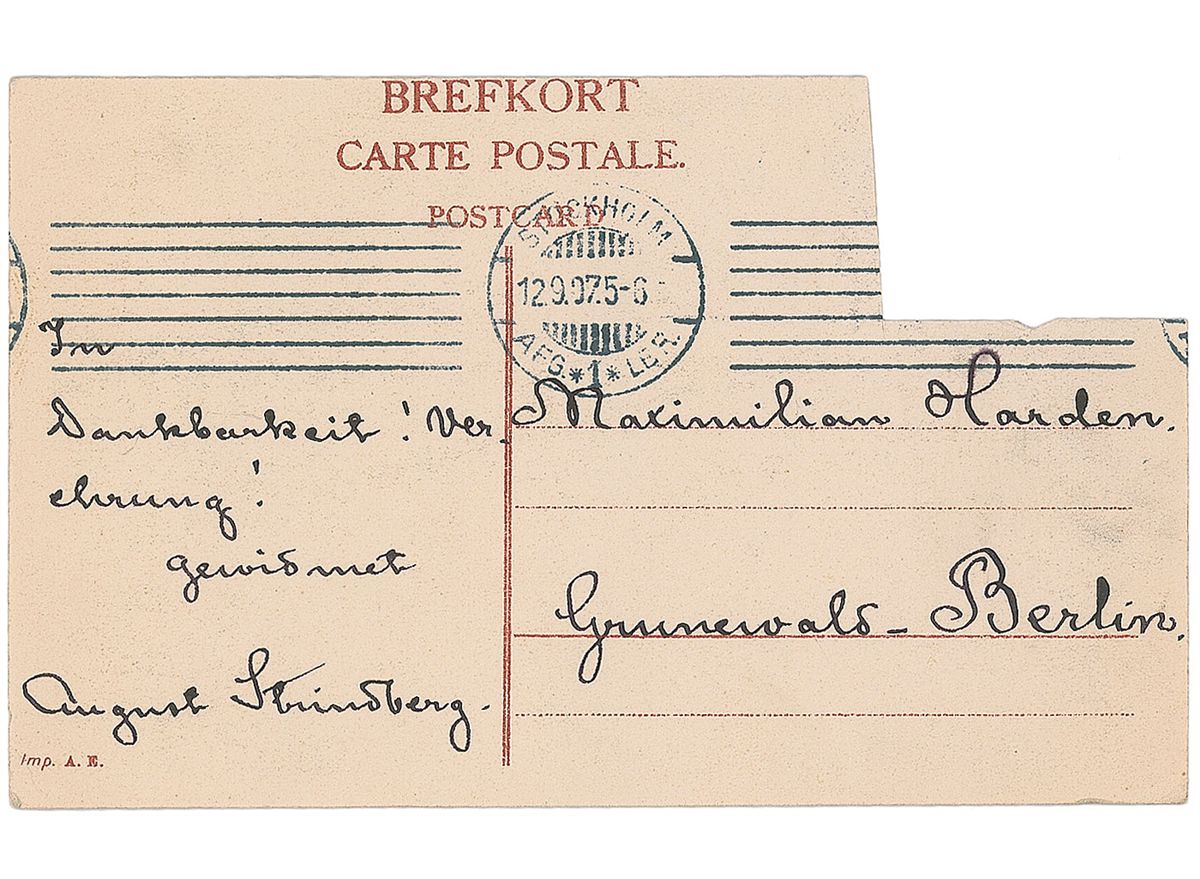 BREFKORT
CARTE POSTALE.
POSTCARD
STOCKHOLM
12.9.07.5-6
AFG.*1*LBR.
In
Dankbarkeit! Ver-
ehrung!
gewidmet
August Strindberg.
Maximilian Harden.
Grunewald-Berlin.
Imp. A. E.